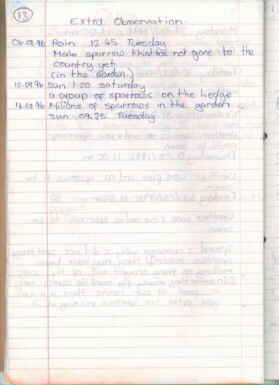 13
Extra Observation
06.08.96 Rain 12.45 Tuesday
Male sparrow that has not gone to the
country yet
(in the garden.)
10.08.96 Sun 1.20 saturday
a group of sparrows on the hedge
Millions of sparrows in the garden
Sun 09.25 Tuesday